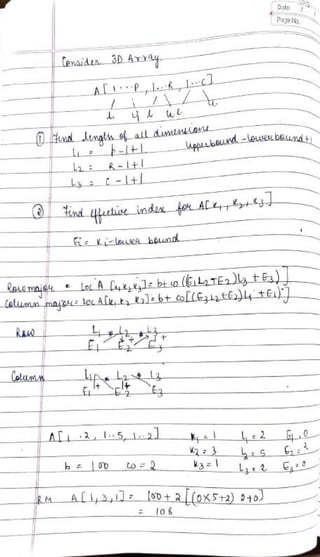 Date: / /
Page No.
Consider 3D Array
A[1...P, 1...R, 1...C]
① Find length of all dimensions
Upperbound - lowerbound +1
L₁ = P-1+1
L₂ = R-1+1
L₃ = C-1+1
② Find effective index for A[K₁, K₂, K₃]
Ei = Ki - lower bound
Row major = Loc A [K₁K₂K₃] = b + ω [(E₁L₂+E₂)L₃ + E₃)]
Column major = Loc A[K₁ K₂ K₃] = b + ω[(E₃L₂+E₂)L₁ + E₁)]
Row L₁ L₂ L₃
E₁ E₂ E₃
Column L₁ L₂ L₃
E₁ E₂ E₃
A[1..2, 1..5, 1..2] K₁ = 1 L₁ = 2 E₁ = 0
K₂ = 3 L₂ = 5 E₂ = 2
b = 100 ω = 2 K₃ = 1 L₃ = 2 E₃ = 0
RM A[1,3,1] = 100 + 2 [(0×5+2) 2+0]
= 108